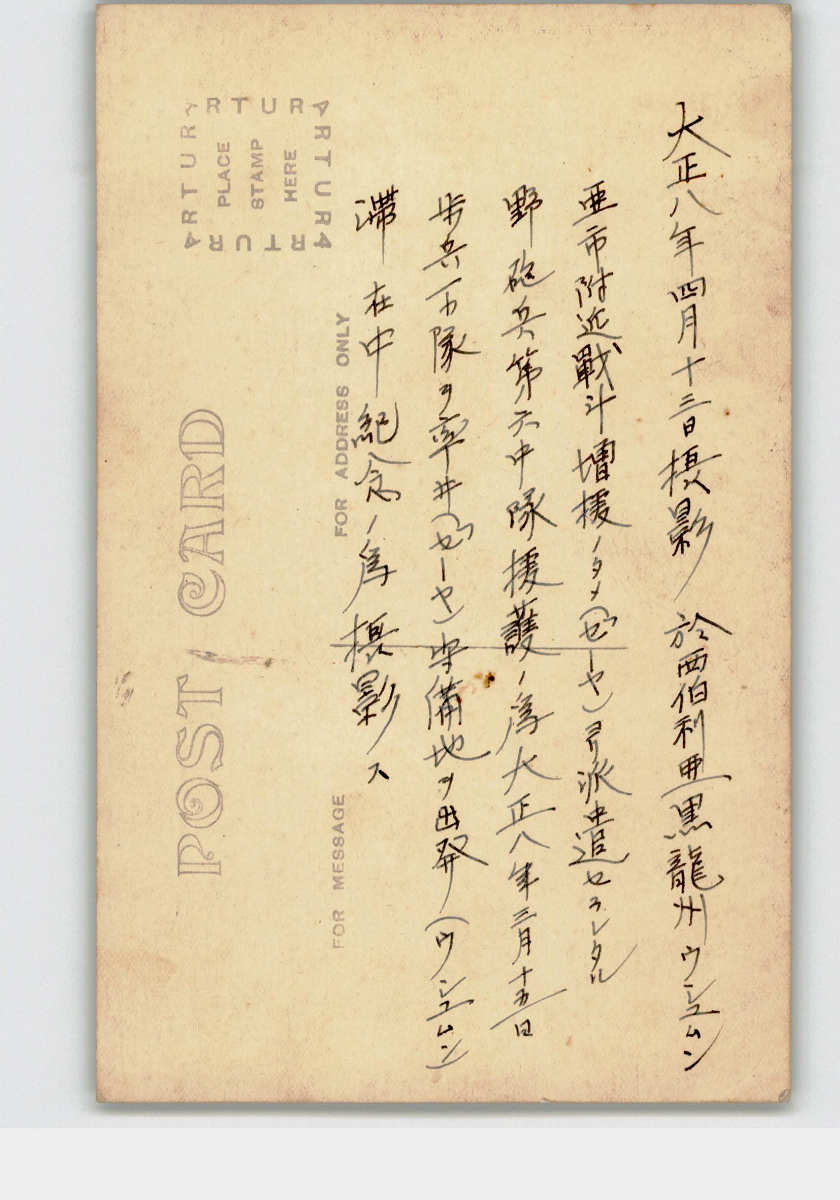 大正八年四月十三日撮影 於西伯利亜黒龍州ウシユムン
亜市附近戦斗増援ノタメ(ゼーヤ)ヨリ派遣セラレタル
野砲兵第六中隊援護ノ為大正八年三月十五日
歩兵一小隊ヲ率井(ゼーヤ)守備地ヲ出発(ウシユムン)
滞在中紀念ノ為撮影ス
ARTURA
ARTURA
ARTURA
ARTURA
PLACE
STAMP
HERE
POST CARD
FOR ADDRESS ONLY
FOR MESSAGE